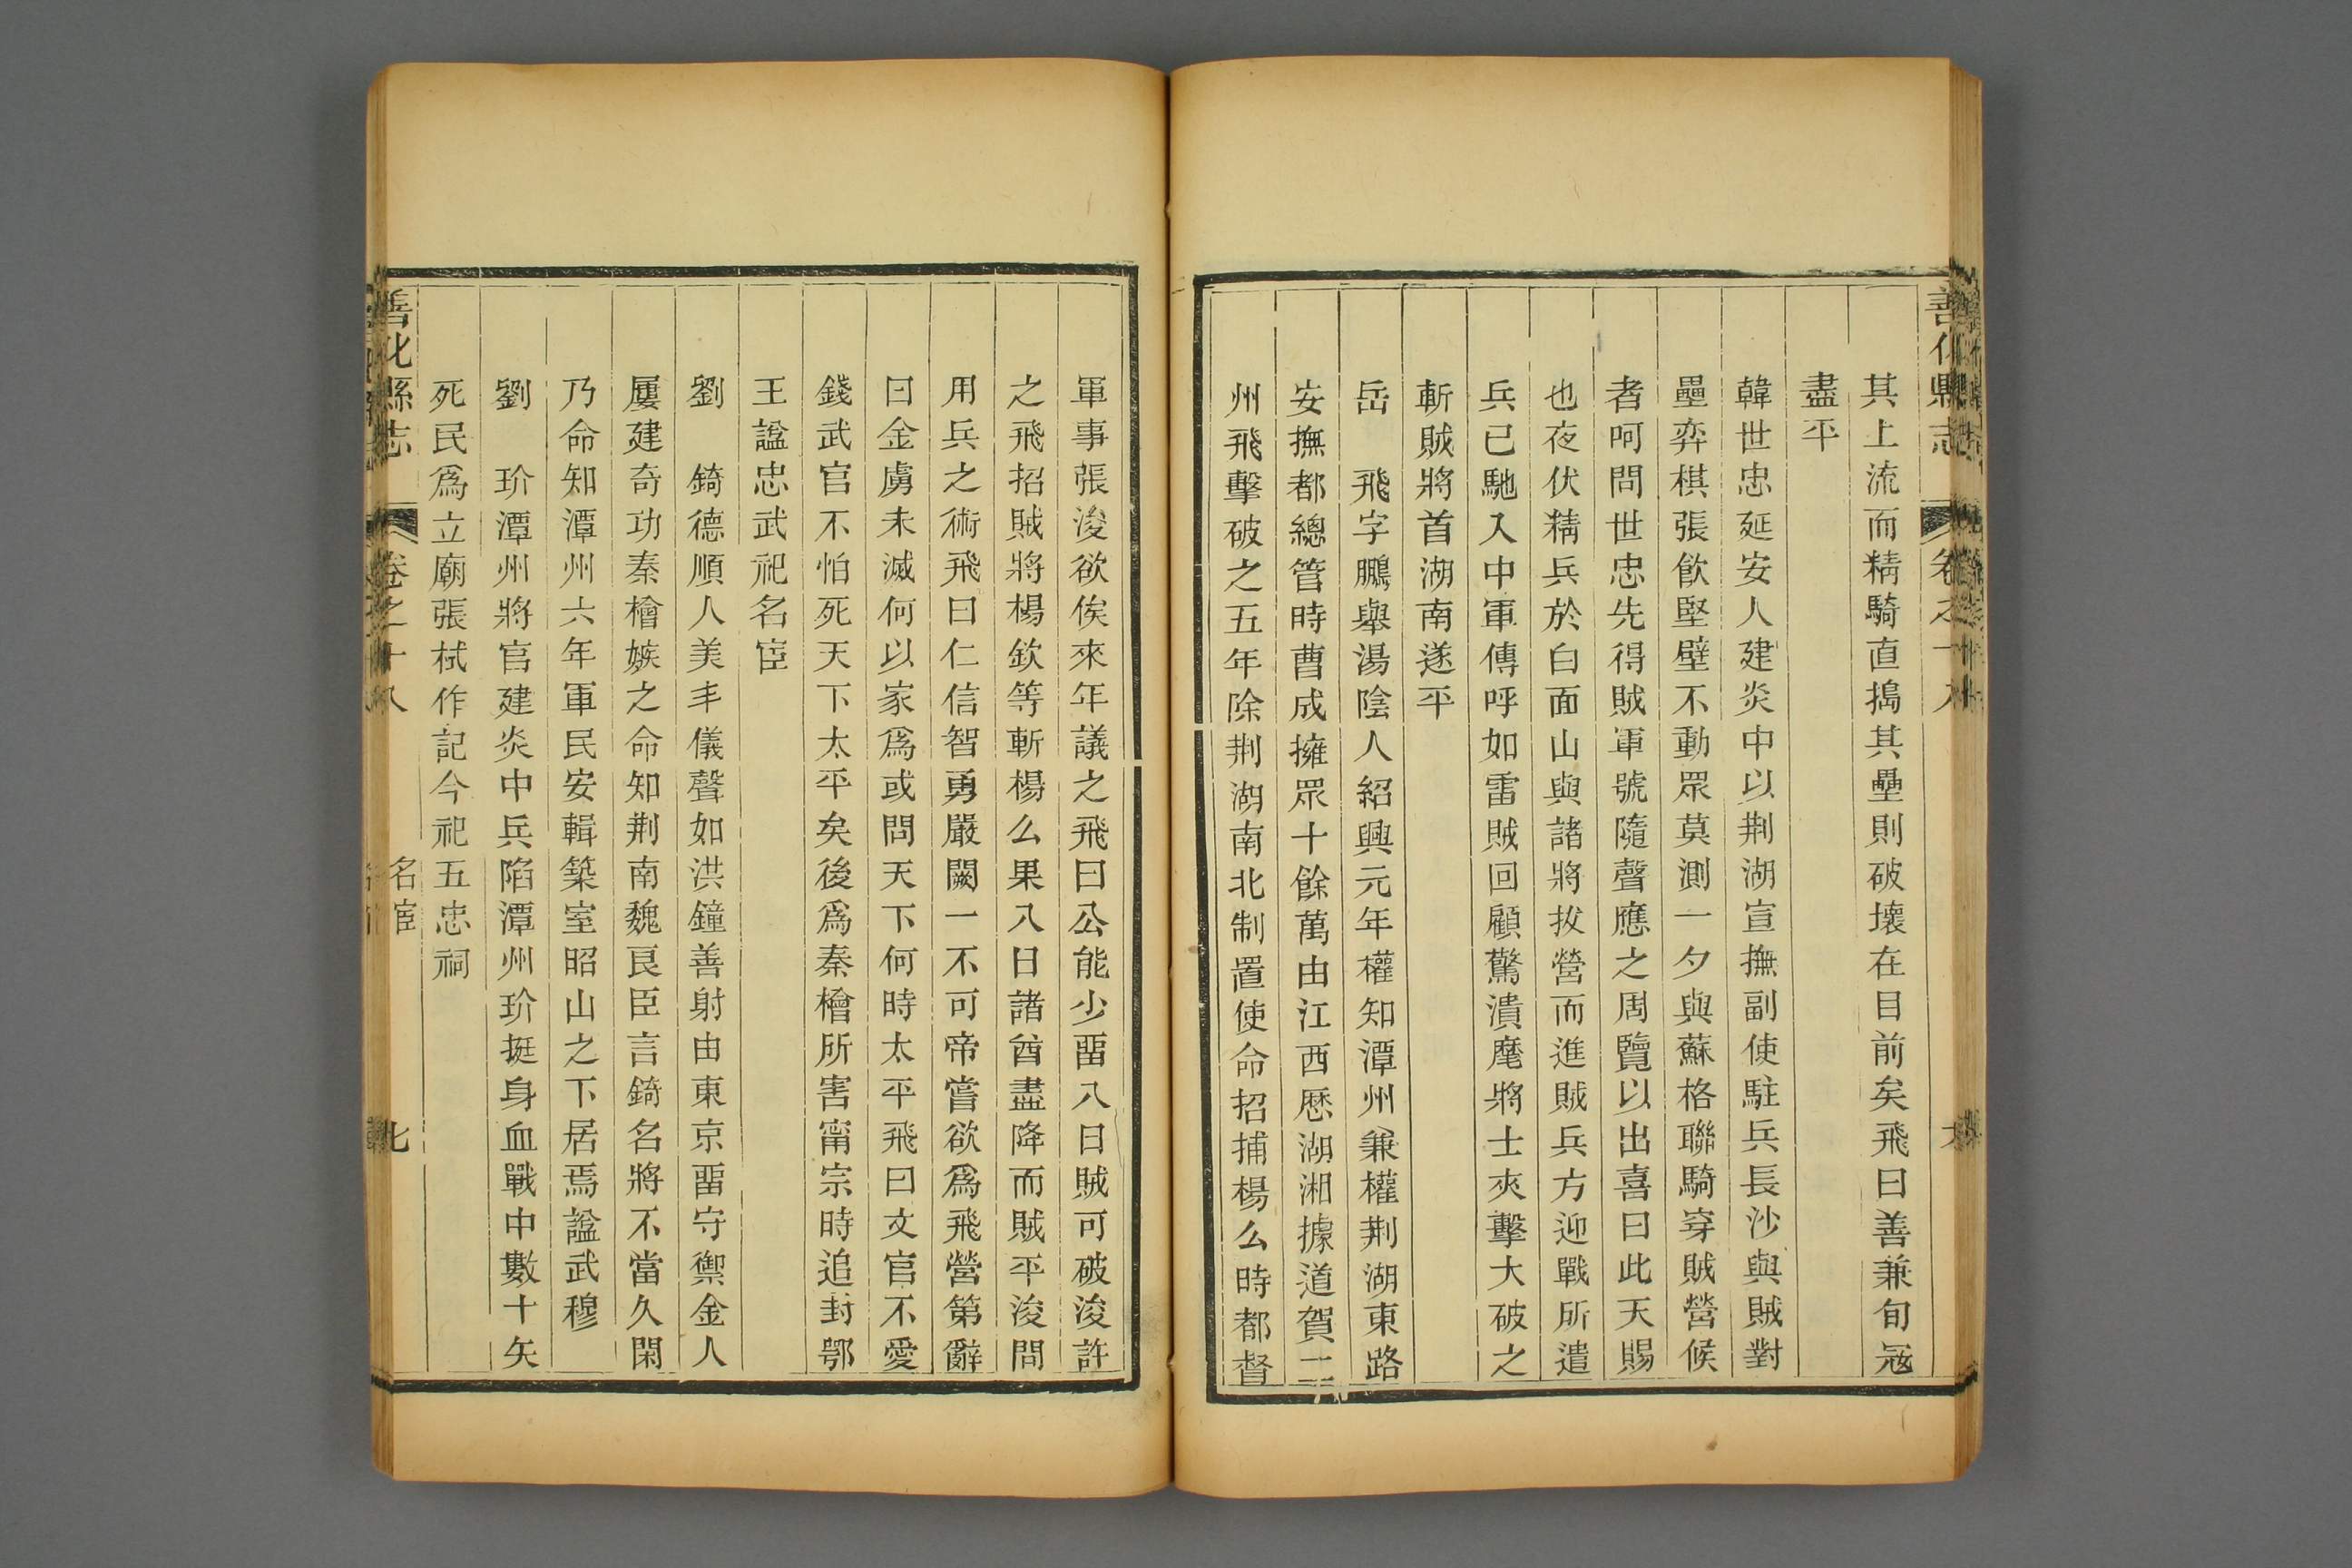 善化縣志 卷之十八
其上流而精騎直搗其壘則破壞在目前矣飛曰善兼旬冦
盡平
韓世忠延安人建炎中以荆湖宣撫副使駐兵長沙與賊對
壘弈棋張飲堅壁不動眾莫測一夕與蘇格聯騎穿賊營候
者呵問世忠先得賊軍號隨聲應之周覽以出喜曰此天賜
也夜伏精兵於白面山與諸將拔營而進賊兵方迎戰所遣
兵已馳入中軍傳呼如雷賊回顧驚潰麾將士夾擊大破之
斬賊將首湖南遂平
岳　飛字鵬舉湯陰人紹興元年權知潭州兼權荆湖東路
安撫都總管時曹成擁眾十餘萬由江西厯湖湘據道賀二
州飛擊破之五年除荆湖南北制置使命招捕楊么時都督
軍事張浚欲俟來年議之飛曰公能少畱八日賊可破浚許
之飛招賊將楊欽等斬楊么果八日諸酋盡降而賊平浚問
用兵之術飛曰仁信智勇嚴闕一不可帝嘗欲爲飛營第辭
曰金虜未滅何以家爲或問天下何時太平飛曰文官不愛
錢武官不怕死天下太平矣後爲秦檜所害甯宗時追封鄂
王諡忠武祀名宦
劉　錡德順人美丰儀聲如洪鐘善射由東京畱守禦金人
屢建奇功秦檜嫉之命知荆南魏良臣言錡名將不當久閑
乃命知潭州六年軍民安輯築室昭山之下居焉諡武穆
劉　玠潭州將官建炎中兵陷潭州玠挺身血戰中數十矢
死民爲立廟張栻作記今祀五忠祠
善化縣志 卷之十八 名宦